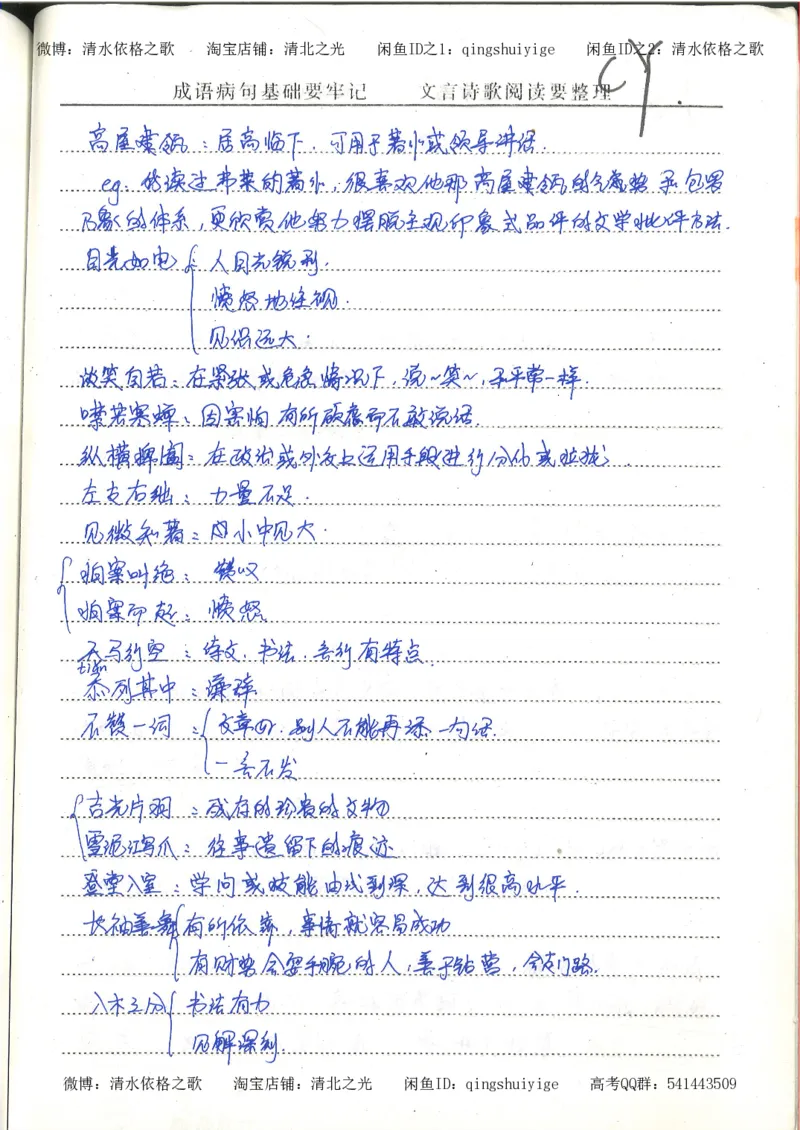 微博：清水依格之歌 淘宝店铺：清北之光 闲鱼ID之1：qingshuiyige 闲鱼ID之2：清水依格之歌
成语病句基础要牢记 文言诗歌阅读要整理
高屋建瓴：居高临下，可用于著作或领导讲话.
eg. 读过弗莱的著作，很喜欢他那高屋建瓴的气势和包罗
万象的体系，更欣赏他努力摆脱主观印象式品评的文学批评方法.
目光如电 人目光锐利.
愤怒地怒视.
见识远大.
谈笑自若：在紧张或危急情况下，说~笑~，和平常一样.
噤若寒蝉：因害怕有所顾虑而不敢说话.
纵横捭阖：在政治或外交上运用手段进行分化或拉拢
左支右绌：力量不足.
见微知著：由小中见大.
拍案叫绝：赞叹
拍案而起：愤怒
天马行空：诗文.书法.言行有特点.
tiǎn
忝列其中：谦辞.
不赞一词： 文章好.别人不能再添一句话.
一言不发
吉光片羽：残存的珍贵的文物
雪泥鸿爪：往事遗留下的痕迹
登堂入室：学问或技能由浅到深，达到很高水平.
长袖善舞 有所依靠，事情就容易成功
有财势会耍手腕的人，善于钻营，会走门路.
入木三分 书法有力
见解深刻.
微博：清水依格之歌 淘宝店铺：清北之光 闲鱼ID：qingshuiyige 高考QQ群：541443509